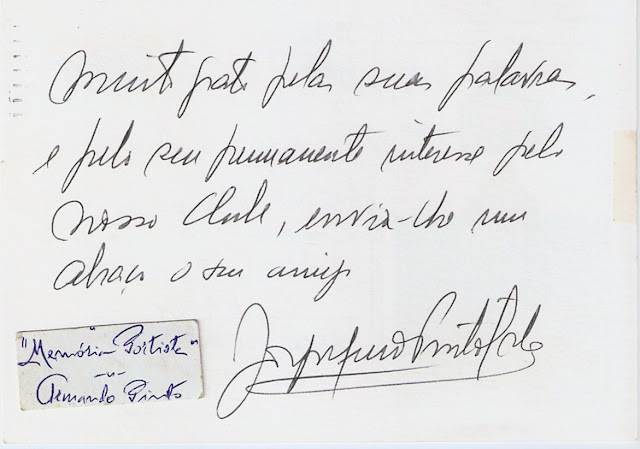 Muito grato pelas suas palavras,
e pelo seu permanente interesse pelo
nosso Clube, envia-lhe um
abraço o seu amigo
Jorge Nuno Pinto da Costa
"Memória Portista"
Armando Pinto